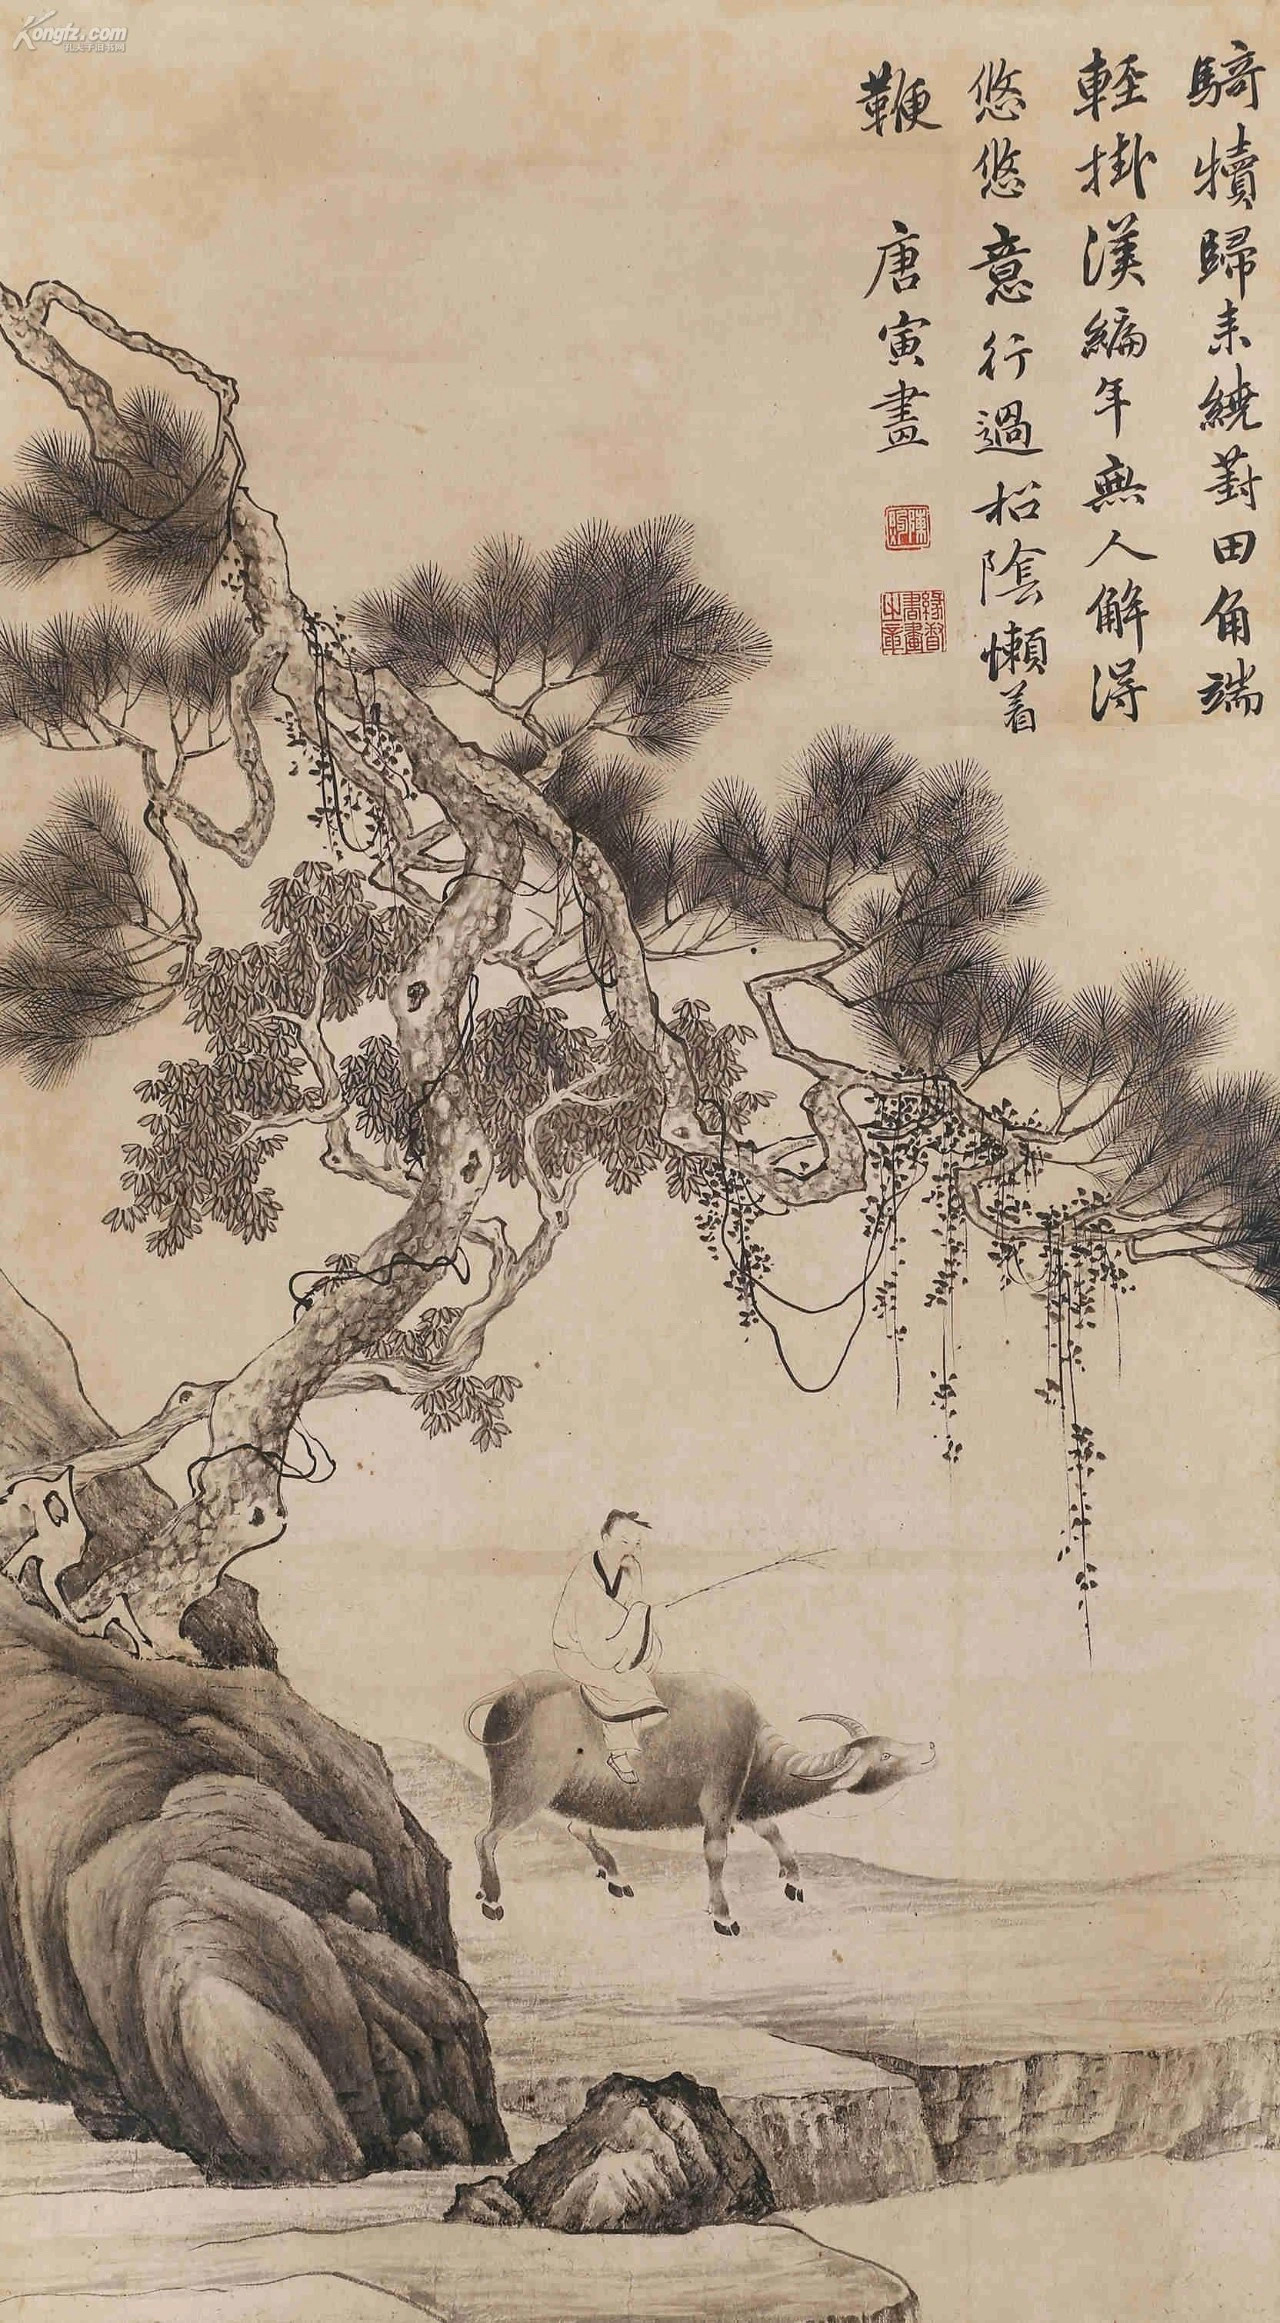 騎犢歸来繞葑田角端
輕掛漢編年無人解得
悠悠意行過松陰懶着
鞭
唐寅畫
緑香書畫之章
Kongfz.com
孔夫子旧书网